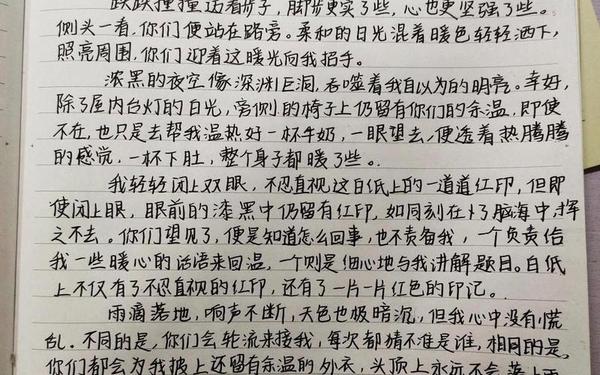 跌跌撞撞迈着步子，脚步更实了些，心也更坚强了些。
侧头一看，你们便站在路旁。柔和的日光混着暖色轻轻洒下，
照亮周围，你们迎着这暖光向我招手。
浓黑的夜空像深渊巨洞，吞噬着我自以为的明亮。幸好，
除了屋内台灯的白光，旁侧的椅子上仍留有你们的余温，即使
不在，也只是去帮我温热好一杯牛奶，一眼望去，便透着热腾腾
的感觉，一杯下肚，整个身子都暖了些。
我轻轻闭上双眼，不忍直视这白纸上的一道道红印，但即
使闭上眼，眼前的漆黑中仍留有红印，如同刻在了脑海中，挥
之不去。你们望见了，便是知道怎么回事，也不责备我，一个负责给
我一些暖心的话语来回温，一个则是细心地与我讲解题目。白纸
上不仅有了不忍直视的红印，还有了一片一片红色的印记。
雨滴落地，响声不断，天色也极暗沉，但我心中没有慌
乱。不同的是，你们会轮流来接我，每次都猜不准是谁，相同的是，
你们都会为我披上还留有余温的外衣，头顶上永远不会落上雨